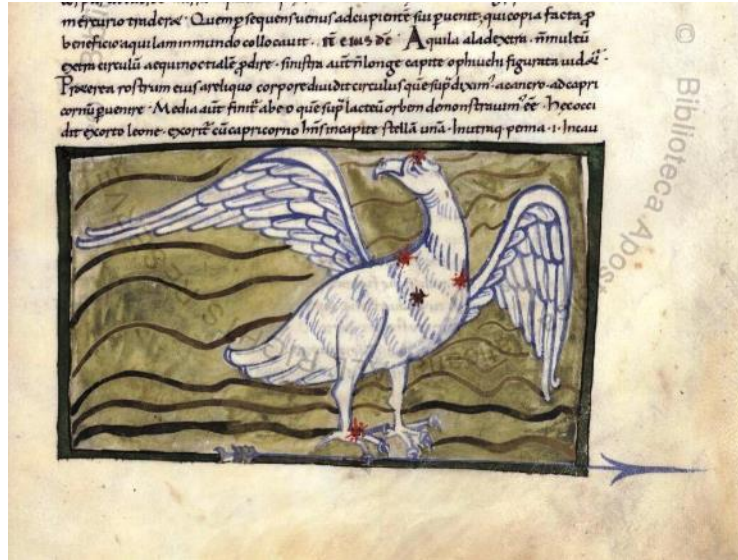 mercurio tradere. Quemp sequens uenus adcupientē sui puenit, qui copia facta p
beneficio aquilam inmundo collocauit. Aquila ala dextra. ñ multū
extra circulū aequinoctialē pdire. sinistra aut̄ ñ longe capite ophiuchi figurata
Praeterea rostrum eius areliquo corpore diuidit circulus que sup diximꝰ. acancro. adcapri
cornū puenire. Media aut̄ finit̄ abeo que sup lacteū orbem demonstrauimꝰ eē. Hec occi
dit exorto leone. exorit̄ cū capricorno hn̄s incapite stellā unā. Inutraq penna. i. Incau
© Biblioteca Aposto